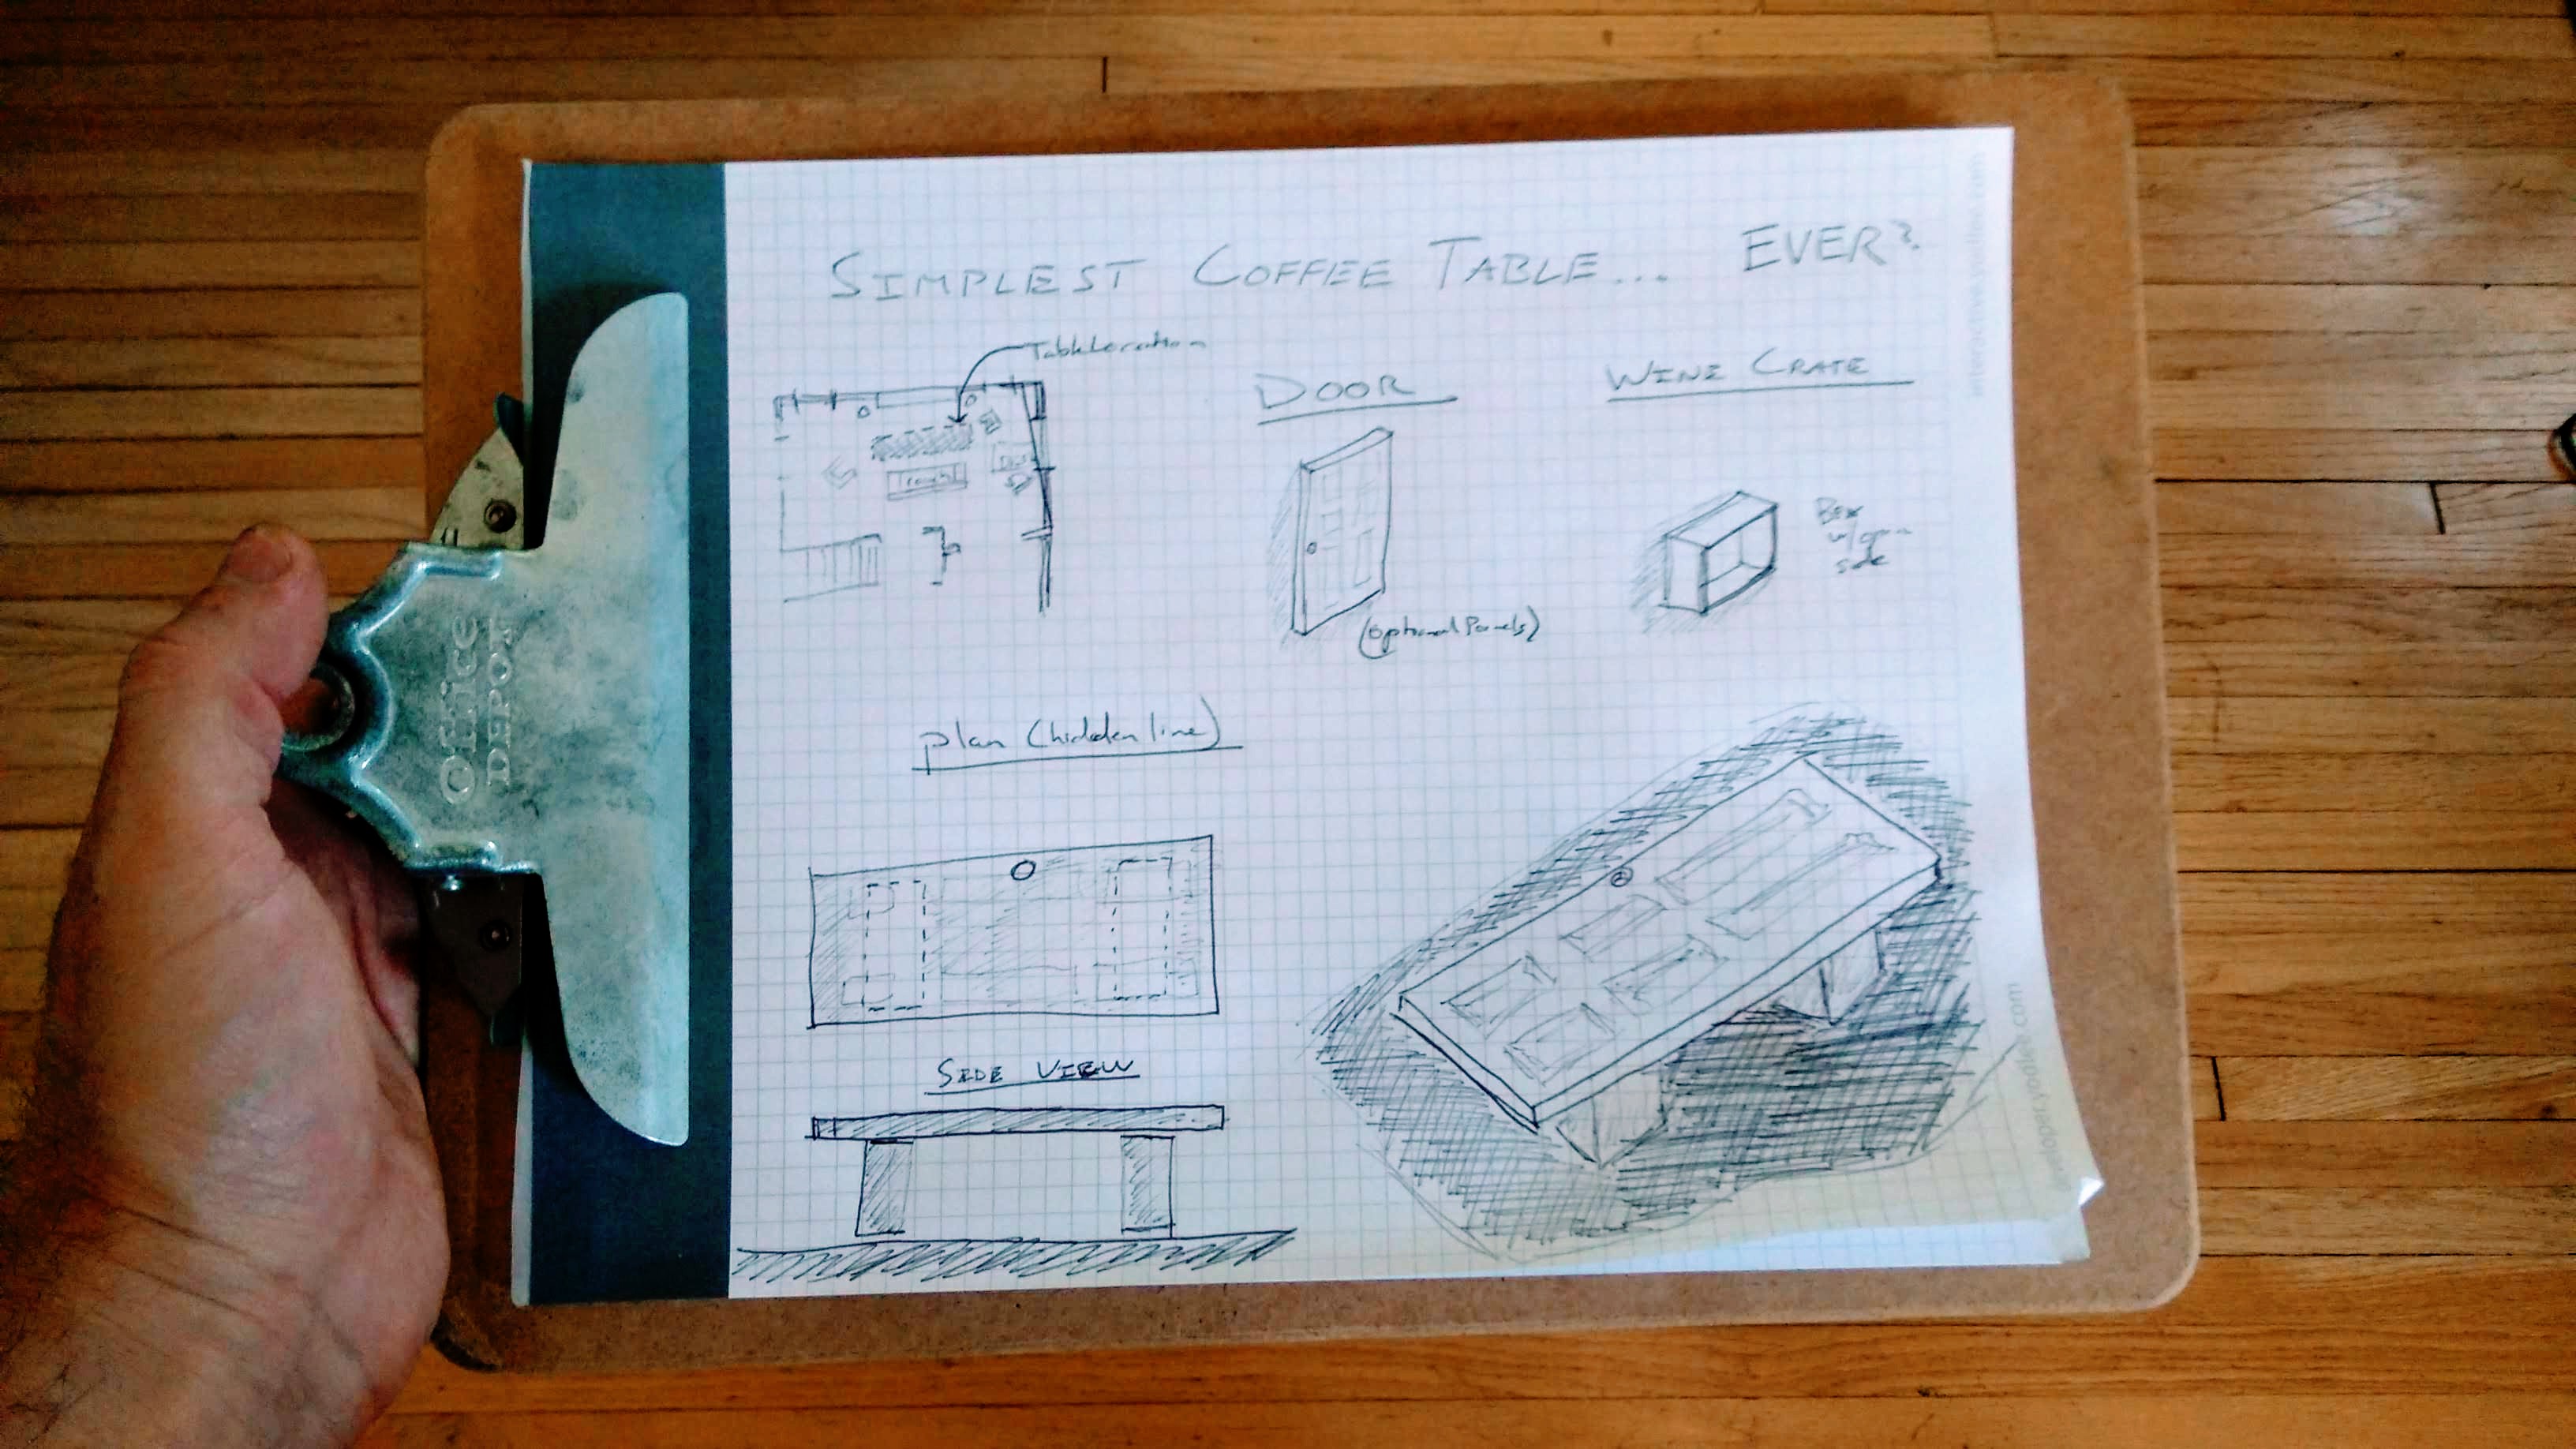 SIMPLEST COFFEE TABLE... EVER?
Table Location
DOOR
WINE CRATE
Box
w/open
side
(optional Panels)
Office
DEPOT
plan (hidden line)
SIDE VIEW